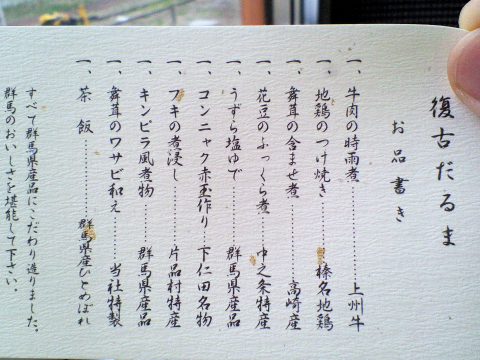 復古だるま
お品書き
一、牛肉の時雨煮…………上州牛
一、地鶏のつけ焼き………榛名地鶏
一、舞茸の含ませ煮………高崎産
一、花豆のふっくら煮……中之条特産
一、うずら塩ゆで…………群馬県産品
一、コンニャク赤玉作り…下仁田名物
一、フキの煮浸し…………片品村特産
一、キンピラ風煮物………群馬県産品
一、舞茸のワサビ和え……当社特製
一、茶飯……………群馬県産ひとめぼれ
すべて群馬県産品にこだわり造りました。
群馬のおいしさを堪能して下さい。